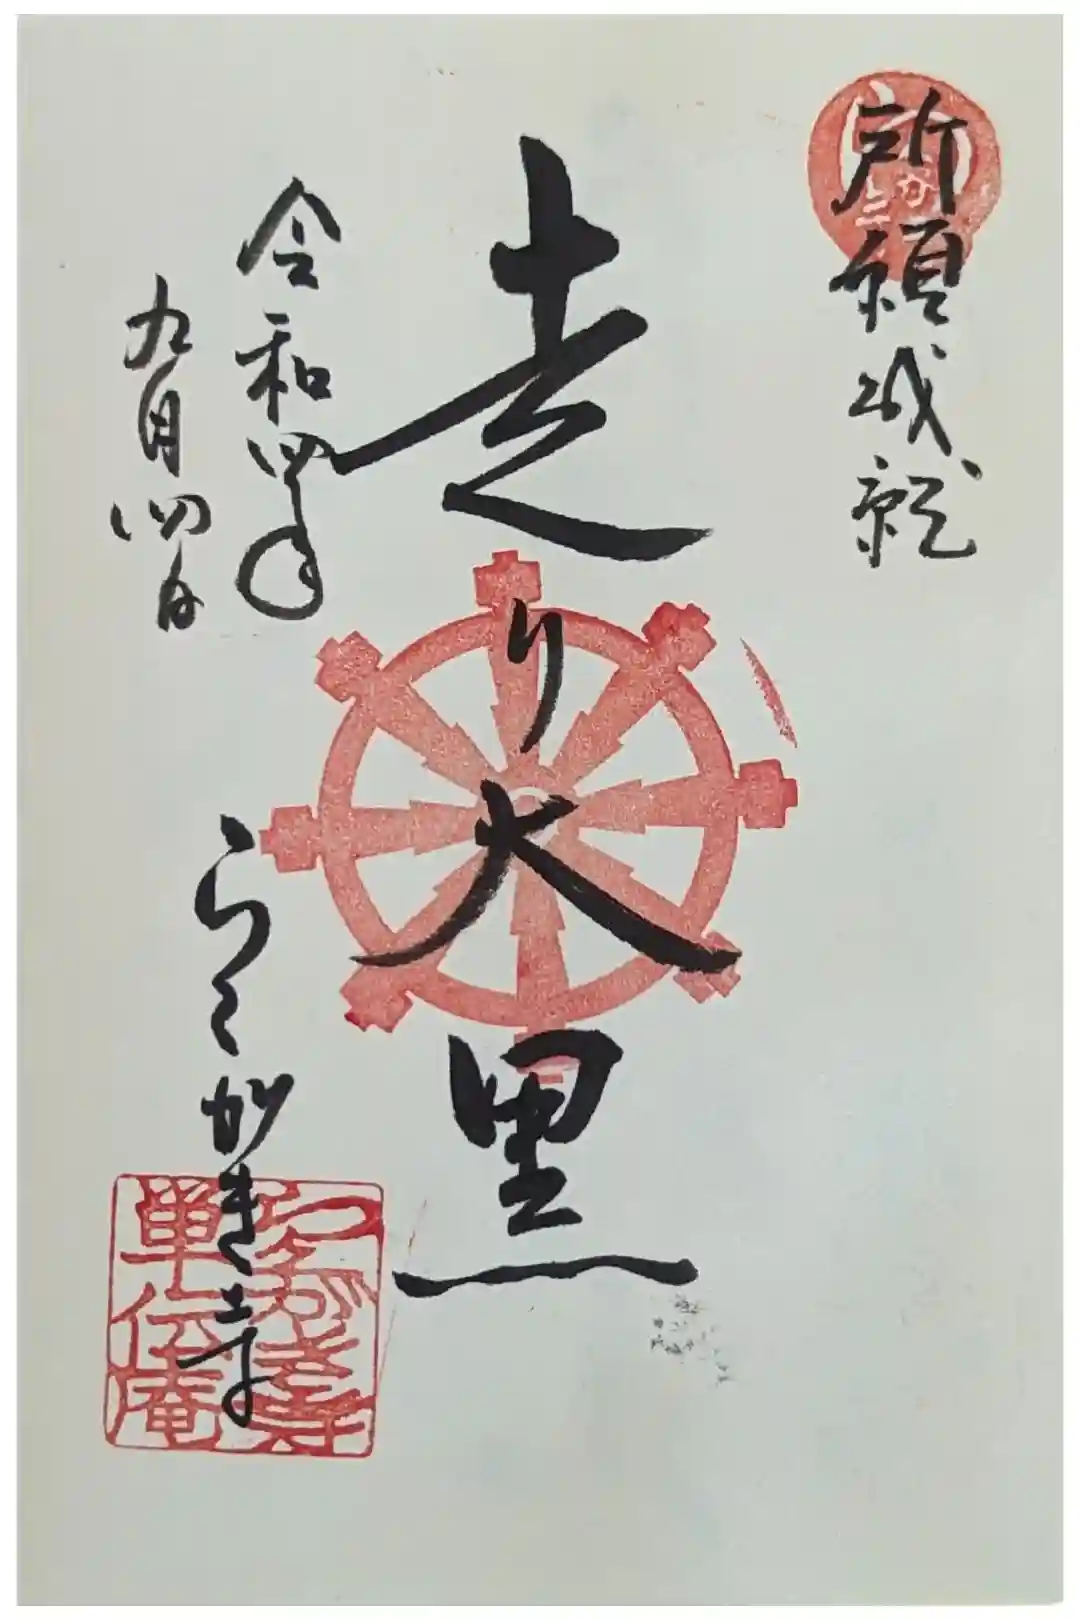 所願成就
走り大黒
令和四年
九月四日
らくがき寺
らくがき寺
単伝庵